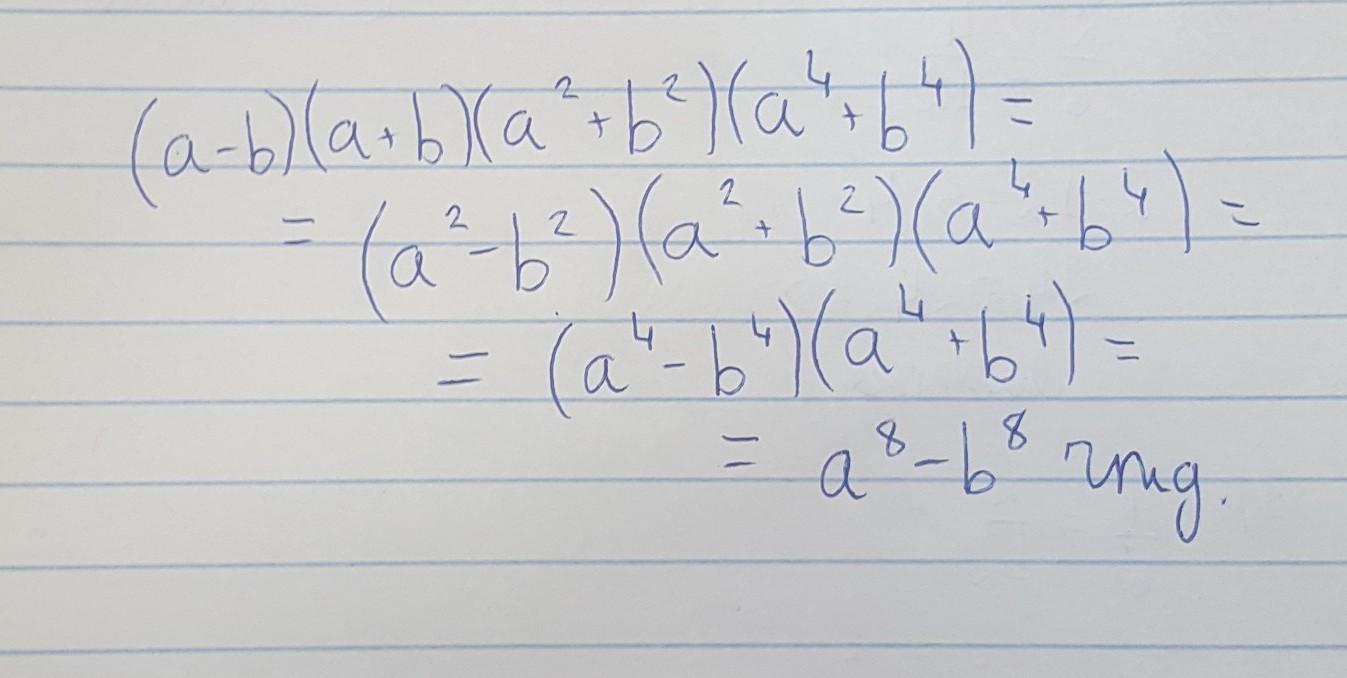 (a-b)(a+b)(a²+b²)(a⁴+b⁴)=
=(a²-b²)(a²+b²)(a⁴+b⁴)=
=(a⁴-b⁴)(a⁴+b⁴)=
=a⁸-b⁸